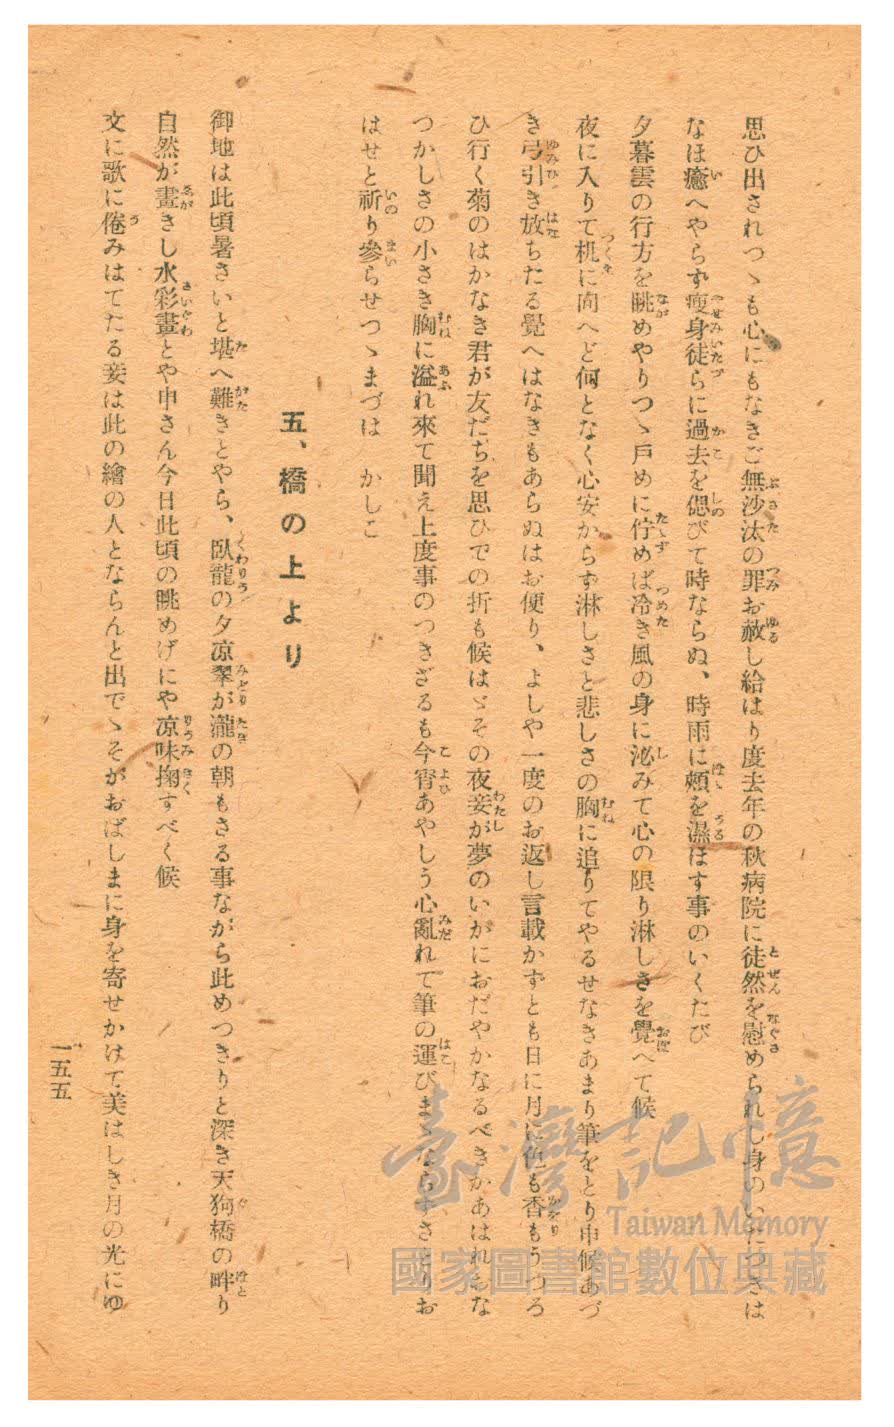 思ひ出されつゝも心にもなきご無沙汰の罪お赦し給はり度去年の秋病院に徒然を慰められし身のいたつきは
なほ癒へやらず瘦身徒らに過去を偲びて時ならぬ、時雨に頰を濕ほす事のいくたび
夕暮雲の行方を眺めやりつゝ戸めに佇めば冷き風の身に泌みて心の限り淋しさを覺へて候
夜に入りて机に向へど何となく心安からず淋しさと悲しさの胸に追りてやるせなきあまり筆をとり申候あづ
き弓引き放ちたる覺へはなきもあらぬはお便り、よしや一度のお返し言載かずとも日に月に色も香もうつろ
ひ行く菊のはかなき君が友だちを思ひでの折も候はゞその夜妾が夢のいかにおだやかなるべきかあはれ な
つかしさの小さき胸に溢れ來て聞え上度事のつきざるも今宵あやしう心亂れて筆の運びまゝならず さとりお
はせと祈り參らせつゝまづは かしこ
五、橋の上より
御地は此頃暑さいと堪へ難きとやら、臥龍の夕涼翠が瀧の朝もさる事ながら此めつきりと深き天狗橋の畔り
自然が畫きし水彩畫とや申さん今日此頃の眺めげにや凉味掬すべく候
文に歌に倦みはてたる妾は此の繪の人とならんと出でゝそがおばしまに身を寄せかけて美はしき月の光にゆ
一五五
臺灣記憶
Taiwan Memory
國家圖書館數位典藏